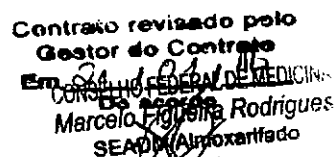 Contrato revisado pelo
Gestor do Contrato
Em
CONSELHO FEDERAL DE MEDICINA
De acordo
Marcelo Figueira Rodrigues
SEADM/Almoxarifado